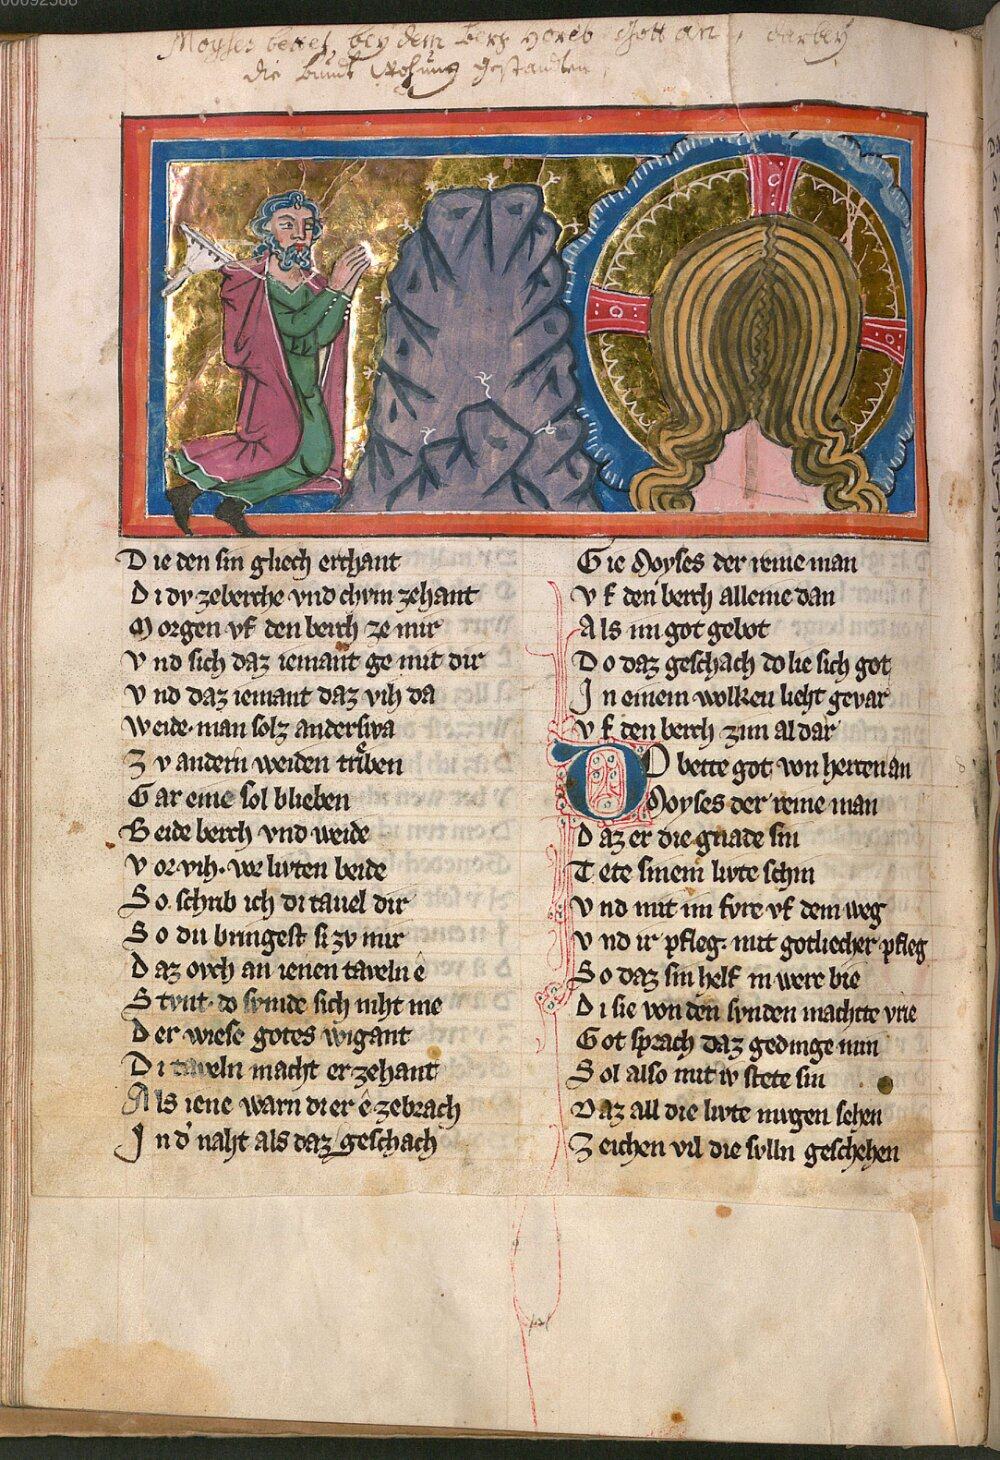 00092588
Moyses bettet bey dem berg Horeb Gott an, darbey
die
Die den sin gliech erchant
Di dv zeberche vnd chvm zehant
Morgen vf den berch ze mir
Vnd sich daz iemant ge mit dir
Vnd daz iemant daz vih da
Weide. man solz anderswa
Zv andern weiden triben
Gar eine sol bliben
Beide berch vnd weide
Vor vih. vor livten beide
So schrib ich di tauel dir
So du bringest si zv mir
Daz ovch an ienen taveln e
Stvnt. do svmde sich niht me
Der wise gotes wigant
Di taveln macht er zehant
Als iene warn di er ê zebrach
In d' naht als daz geschach
Gie Moyses der reine man
Vf den berch alleine dan
Als im got gebot
Do daz geschach do lie sich got
In einem wolken lieht gevar
Vf den berch zim al dar
Do bette got von herten an
Moyses der reine man
Daz er die gnade sin
Tete sinem livte schin
Vnd mit im fvre vf dem weg
Vnd ir pfleg. mit gotlicher pfleg
So daz sin helf in were bie
Di sie von den svnden machtte vrie
Got sprach daz gedinge min
Sol also mit iv stete sin
Daz all die livte mvgen sehen
Zeichen vil die svlln geschehen